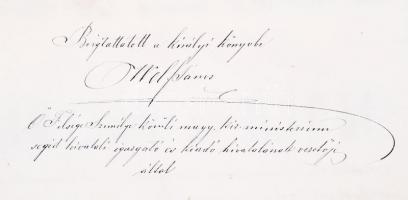 Bejtattatott a királyi könyvbe
Wolf János
Ő Felsége Személye körüli magy. kir. ministerium
segéd hivatali igazgató és kiadó hivatalának vezetője
által